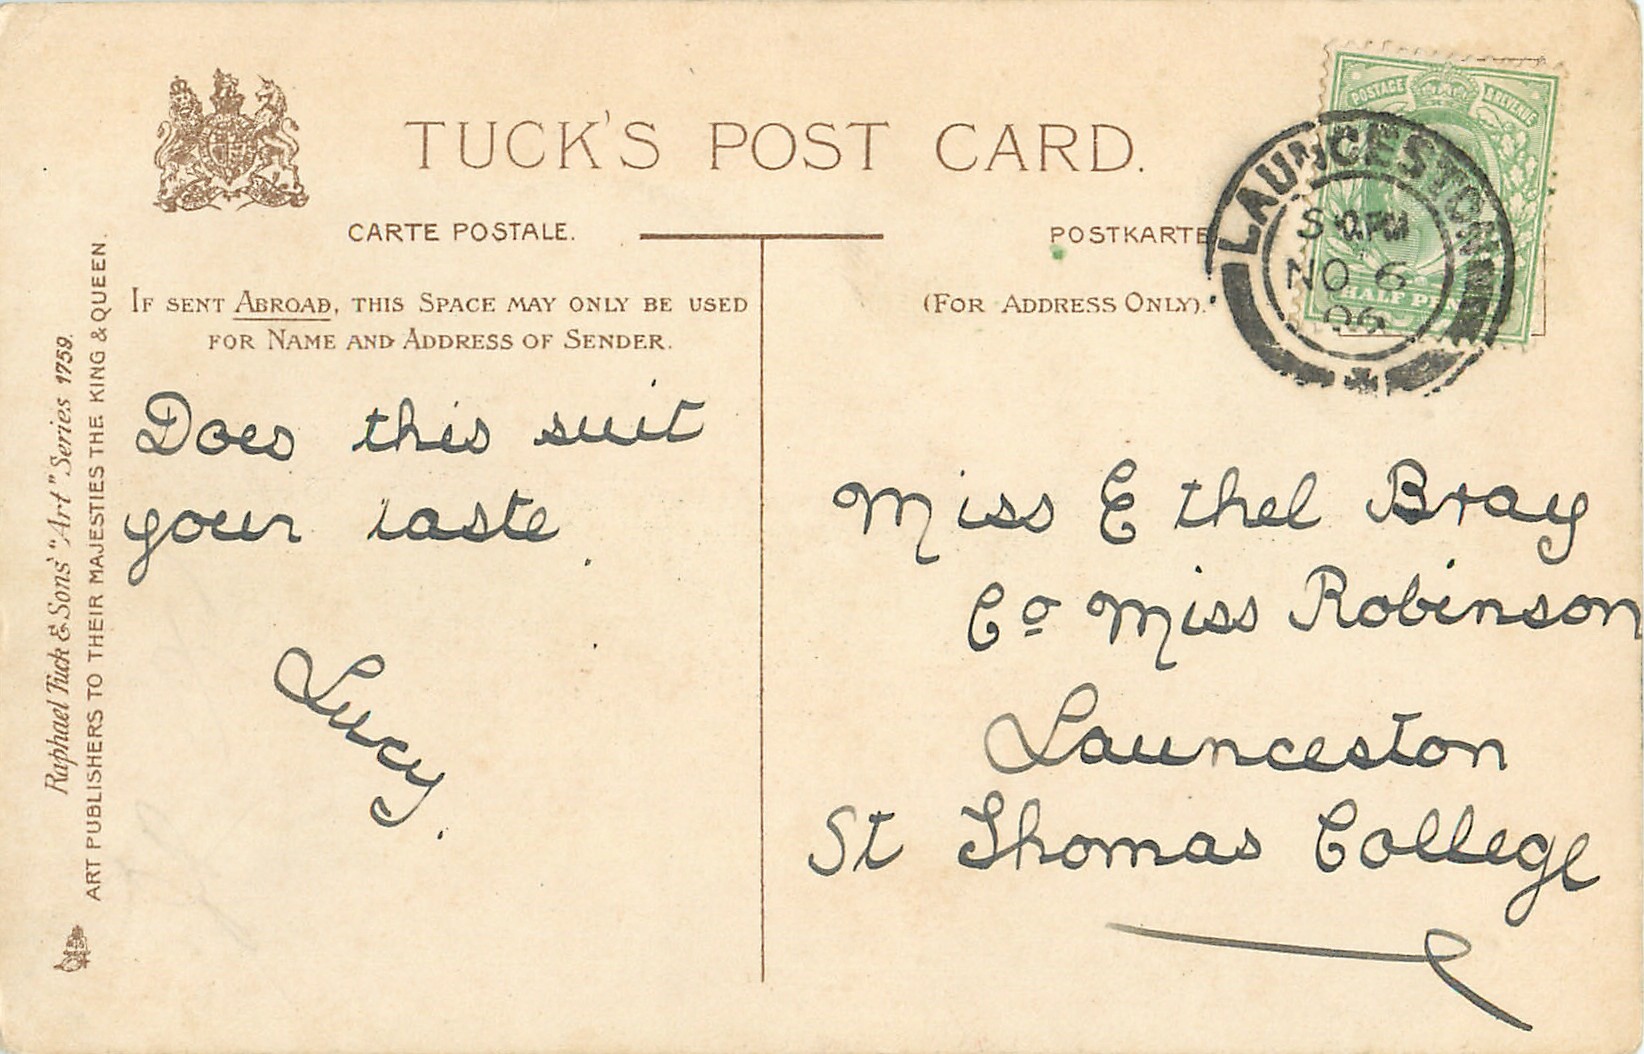 TUCK'S POST CARD.
CARTE POSTALE.
POSTKARTE
IF SENT ABROAD, THIS SPACE MAY ONLY BE USED
FOR NAME AND ADDRESS OF SENDER.
(FOR ADDRESS ONLY).
POSTAGE & REVENUE
HALF PEN
LAUNCESTON
PM
NO 6
06
Raphael Tuck & Sons' "Art" Series 1759.
ART PUBLISHERS TO THEIR MAJESTIES THE KING & QUEEN.
Does this suit
your taste.
Lucy.
Miss Ethel Bray
Co Miss Robinson
Launceston
St Thomas College